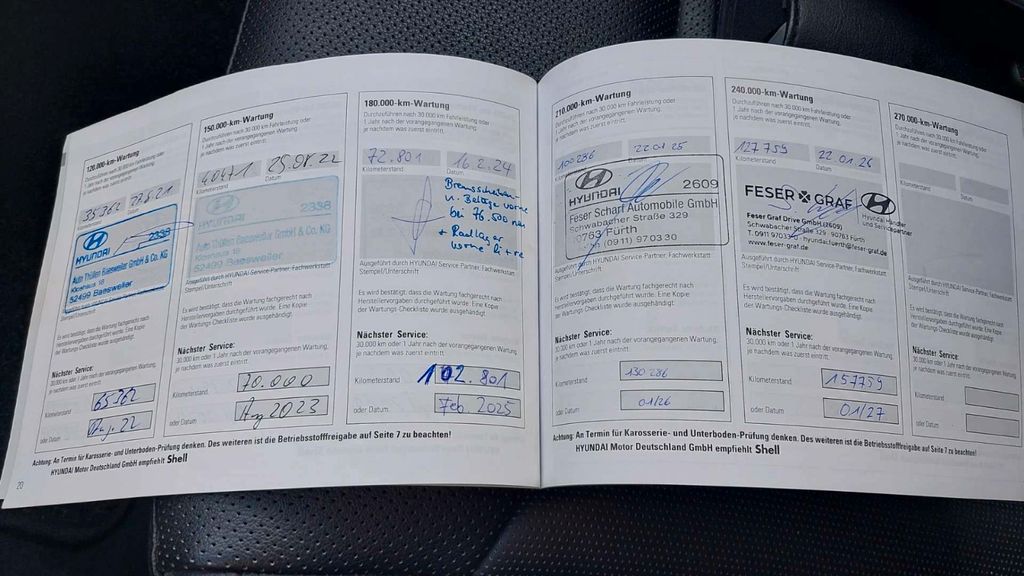 120.000-km-Wartung
Durchzuführen nach 30.000 km Fahrleistung oder
1 Jahr nach der vorangegangenen Wartung,
je nachdem was zuerst eintritt.
35362
Kilometerstand
Datum
HYUNDAI
2338
Auto Thüllen Baesweiler GmbH & Co. KG
52499 Baesweiler
Stempel/Unterschrift
Es wird bestätigt, dass die Wartung fachgerecht nach
Herstellervorgaben durchgeführt wurde. Eine Kopie
der Wartungs-Checkliste wurde ausgehändigt.
Nächster Service:
30.000 km oder 1 Jahr nach der vorangegangenen Wartung,
je nachdem was zuerst eintritt.
Kilometerstand
65362
oder Datum
Aug. 22
150.000-km-Wartung
Durchzuführen nach 30.000 km Fahrleistung oder
1 Jahr nach der vorangegangenen Wartung,
je nachdem was zuerst eintritt.
40471
25.08.22
Kilometerstand
Datum
HYUNDAI
2338
Auto Thüllen Baesweiler GmbH & Co. KG
52499 Baesweiler
Ausgeführt durch HYUNDAI Service-Partner, Fachwerkstatt
Stempel/Unterschrift
Es wird bestätigt, dass die Wartung fachgerecht nach
Herstellervorgaben durchgeführt wurde. Eine Kopie
der Wartungs-Checkliste wurde ausgehändigt.
Nächster Service:
30.000 km oder 1 Jahr nach der vorangegangenen Wartung,
je nachdem was zuerst eintritt.
Kilometerstand
70.000
oder Datum
Aug 2023
180.000-km-Wartung
Durchzuführen nach 30.000 km Fahrleistung oder
1 Jahr nach der vorangegangenen Wartung,
je nachdem was zuerst eintritt.
72.801
16.2.24
Kilometerstand
Datum
Bremsscheiben
u. Beläge vorne
bei 76.500
+ Radlager
vorne li + re
Ausgeführt durch HYUNDAI Service-Partner, Fachwerkstatt
Stempel/Unterschrift
Es wird bestätigt, dass die Wartung fachgerecht nach
Herstellervorgaben durchgeführt wurde. Eine Kopie
der Wartungs-Checkliste wurde ausgehändigt.
Nächster Service:
30.000 km oder 1 Jahr nach der vorangegangenen Wartung,
je nachdem was zuerst eintritt.
Kilometerstand
102.801
oder Datum
Feb 2025
Achtung: An Termin für Karosserie- und Unterboden-Prüfung denken. Des weiteren ist die Betriebsstofffreigabe auf Seite 7 zu beachten!
HYUNDAI Motor Deutschland GmbH empfiehlt Shell
20
210.000-km-Wartung
Durchzuführen nach 30.000 km Fahrleistung oder
1 Jahr nach der vorangegangenen Wartung,
je nachdem was zuerst eintritt.
100286
22.01.25
Kilometerstand
Datum
HYUNDAI
2609
Feser Scharf Automobile GmbH
Schwabacher Straße 329
90763 Fürth
(09 11) 97 03 30
Ausgeführt durch HYUNDAI Service-Partner, Fachwerkstatt
Stempel/Unterschrift
Es wird bestätigt, dass die Wartung fachgerecht nach
Herstellervorgaben durchgeführt wurde. Eine Kopie
der Wartungs-Checkliste wurde ausgehändigt.
Nächster Service:
30.000 km oder 1 Jahr nach der vorangegangenen Wartung,
je nachdem was zuerst eintritt.
Kilometerstand
130 286
oder Datum
01/26
240.000-km-Wartung
Durchzuführen nach 30.000 km Fahrleistung oder
1 Jahr nach der vorangegangenen Wartung,
je nachdem was zuerst eintritt.
127759
22.01.26
Kilometerstand
Datum
FESER GRAF
Hyundai Händler
und Servicepartner
Feser Graf Drive GmbH (2609)
Schwabacher Straße 329 · 90763 Fürth
www.feser-graf.de
Ausgeführt durch HYUNDAI Service-Partner, Fachwerkstatt
Stempel/Unterschrift
Es wird bestätigt, dass die Wartung fachgerecht nach
Herstellervorgaben durchgeführt wurde. Eine Kopie
der Wartungs-Checkliste wurde ausgehändigt.
Nächster Service:
30.000 km oder 1 Jahr nach der vorangegangenen Wartung,
je nachdem was zuerst eintritt.
Kilometerstand
157759
oder Datum
01/27
270.000-km-Wartung
Durchzuführen nach 30.000 km Fahrleistung oder
1 Jahr nach der vorangegangenen Wartung,
je nachdem was zuerst eintritt.
Kilometerstand
Datum
Ausgeführt durch HYUNDAI Service-Partner, Fachwerkstatt
Stempel/Unterschrift
Es wird bestätigt, dass die Wartung fachgerecht nach
Herstellervorgaben durchgeführt wurde. Eine Kopie
der Wartungs-Checkliste wurde ausgehändigt.
Nächster Service:
30.000 km oder 1 Jahr nach der vorangegangenen Wartung,
je nachdem was zuerst eintritt.
Kilometerstand
oder Datum
Achtung: An Termin für Karosserie- und Unterboden-Prüfung denken. Des weiteren ist die Betriebsstofffreigabe auf Seite 7 zu beachten!
HYUNDAI Motor Deutschland GmbH empfiehlt Shell